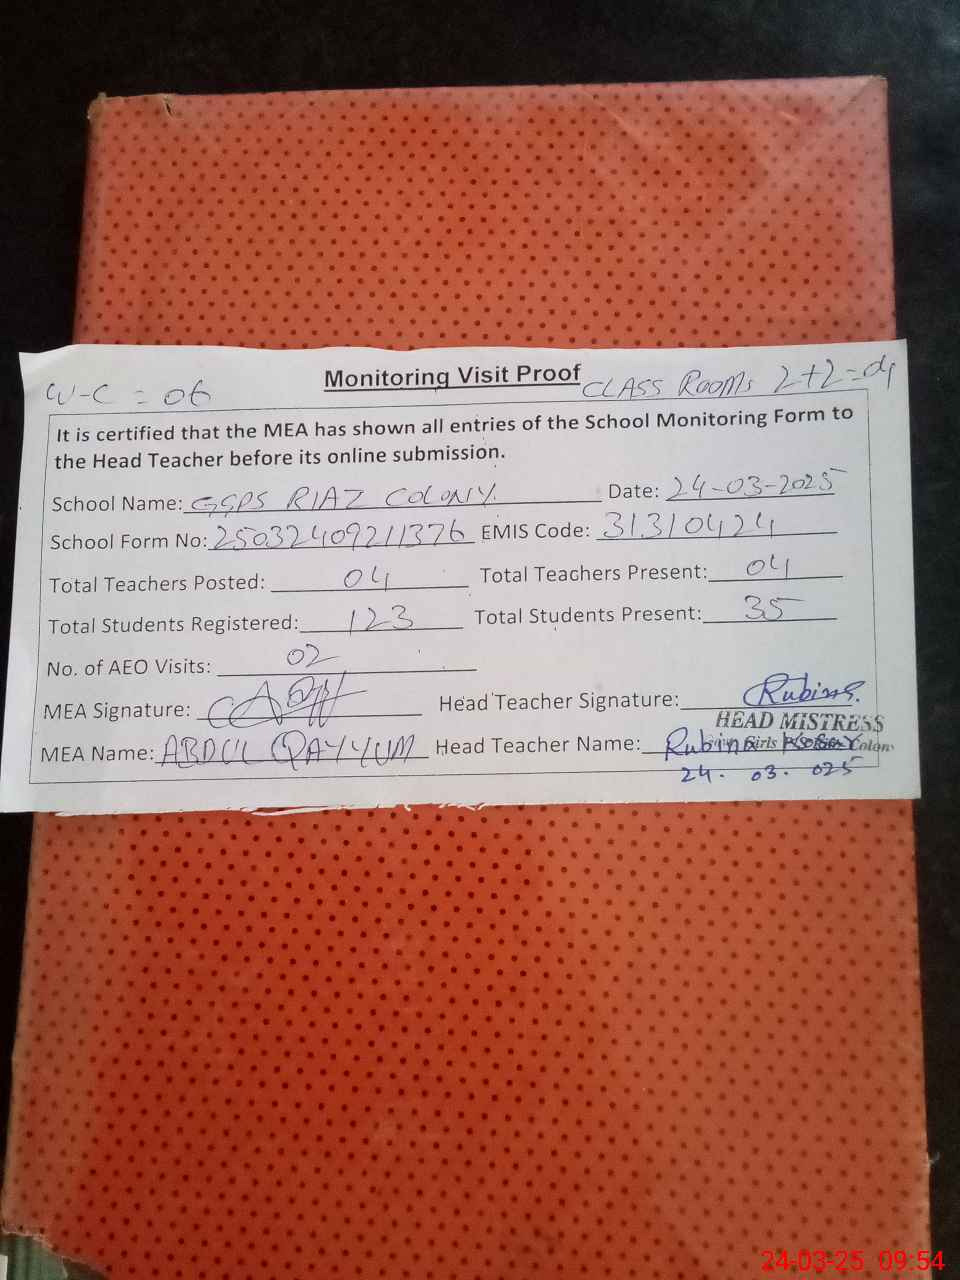 Monitoring Visit Proof
W-C = 06
CLASS ROOMS 2+2=04
It is certified that the MEA has shown all entries of the School Monitoring Form to
the Head Teacher before its online submission.
School Name: GGPS RIAZ COLONY. Date: 24-03-2025
School Form No: 25032409211376 EMIS Code: 31310424
Total Teachers Posted: 04 Total Teachers Present: 04
Total Students Registered: 123 Total Students Present: 35
No. of AEO Visits: 02
MEA Signature: Head Teacher Signature: Rubina
HEAD MISTRESS
MEA Name: ABDUL QAYYUM Head Teacher Name: Rubina
Girls Colony
24. 03. 025
24-03-25 09:54